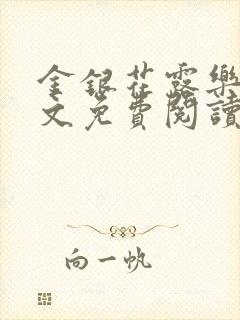 金銀花露樂
文免費閱讀
向一帆